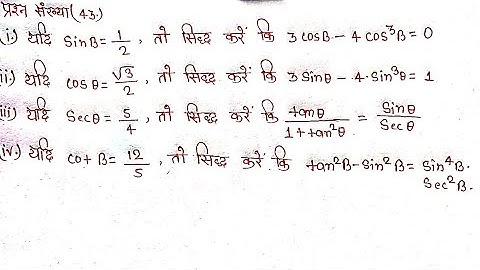 प्रश्न संख्या (43.)
(i.) यदि sinB = 1/2, तो सिद्ध करें कि 3 cosB - 4 cos³B = 0
(ii.) यदि cosθ = √3/2, तो सिद्ध करें कि 3 sinθ - 4·sin³θ = 1
(iii.) यदि secθ = 5/4, तो सिद्ध करें कि tanθ/(1+tan²θ) = sinθ/secθ
(iv.) यदि cot B = 12/5, तो सिद्ध करें कि tan²B - sin²B = sin⁴B·
sec²B.